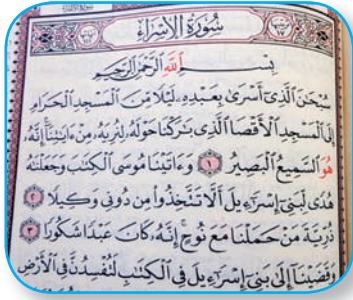 سُورَةُ الْإِسْرَاءِ
بِسْمِ اللَّهِ الرَّحْمَٰنِ الرَّحِيمِ
سُبْحَٰنَ ٱلَّذِىٓ أَسْرَىٰ بِعَبْدِهِۦ لَيْلًا مِّنَ ٱلْمَسْجِدِ ٱلْحَرَامِ
إِلَى ٱلْمَسْجِدِ ٱلْأَقْصَا ٱلَّذِى بَٰرَكْنَا حَوْلَهُۥ لِنُرِيَهُۥ مِنْ ءَايَٰتِنَآ إِنَّهُۥ
هُوَ ٱلسَّمِيعُ ٱلْبَصِيرُ ١ وَءَاتَيْنَا مُوسَى ٱلْكِتَٰبَ وَجَعَلْنَٰهُ
هُدًى لِّبَنِىٓ إِسْرَٰٓءِيلَ أَلَّا تَتَّخِذُوا۟ مِن دُونِى وَكِيلًا ٢
ذُرِّيَّةَ مَنْ حَمَلْنَا مَعَ نُوحٍ إِنَّهُۥ كَانَ عَبْدًا شَكُورًا ٣
وَقَضَيْنَآ إِلَىٰ بَنِىٓ إِسْرَٰٓءِيلَ فِى ٱلْكِتَٰبِ لَتُفْسِدُنَّ فِى ٱلْأَرْضِ